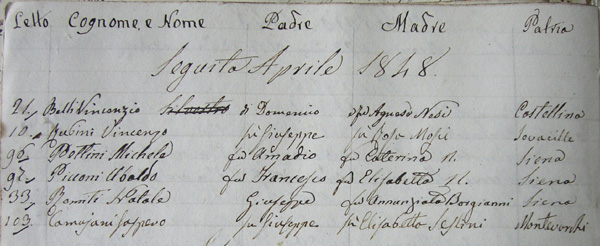 Letto Cognome, e Nome Padre Madre Patria
Seguita Aprile 1848.
21, Belli Vincenzio Silvestro di Domenico Agnese Nesi Castellina
10, Rubini Vincenzo fu Giuseppe fu Rosa Sovicille
96, Bettini Michele fu Amadio fu Caterina N. Siena
92, Picconi Ubaldo fu Francesco fu Elisabetta N. Siena
33, Natale Giuseppe fu Annunziata Borgianni Siena
103, Gaspero fu Giuseppe fu Elisabetta Sestoni Montevarchi